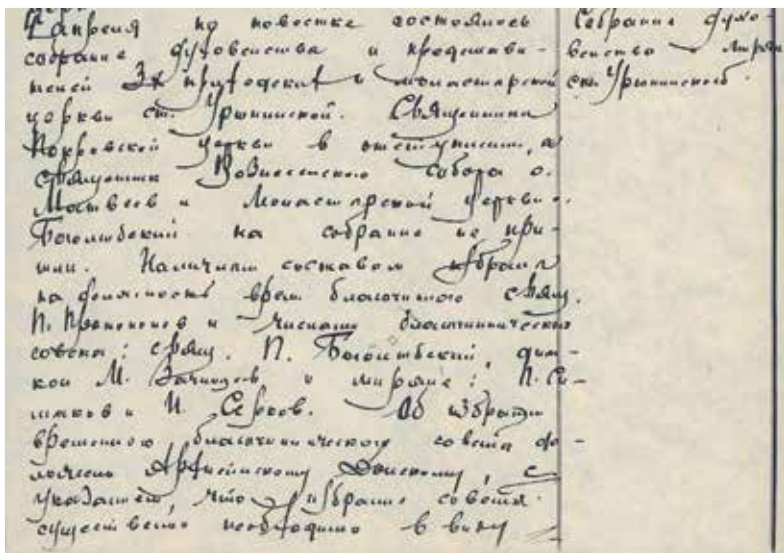 апреля по повестке состоялось
собрание духовенства и представи-
телей 3х приходских и монастырской
церкви ст. Урюпинской. Священника
Покровской церкви в отсутствии, а
священник Вознесенского собора о.
Матвеев и Монастырской церкви о.
Боголюбский на собрание не при-
шли. Наличным составом избрали
на должность врем. благочинного свящ.
П. Прокопиев и членами благочиннического
совета: свящ. П. Боголюбский, диа-
кон М. и миряне: П. Си-
и И. Об избрании
временного благочиннического совета до-
ложено Архиепископу Донскому, с
указанием, что избрание совета
существенно необходимо в виду
Собрание духо-
венства и мирян
ст. Урюпинской.